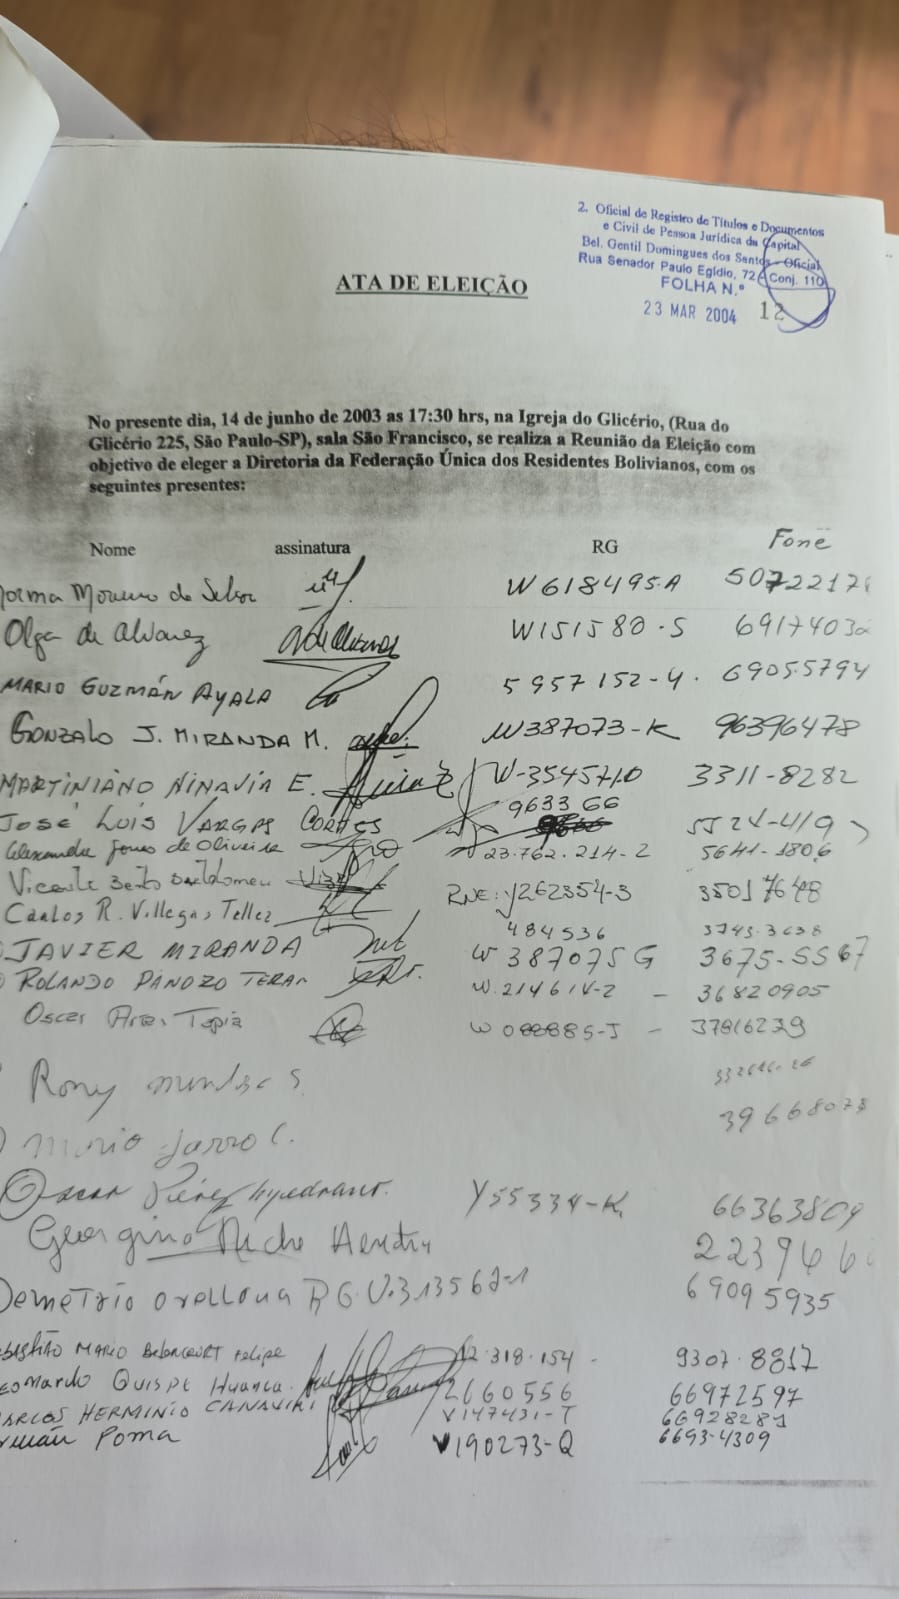 2. Oficial de Registro de Títulos e Documentos
e Civil de Pessoa Jurídica da Capital
Bel. Gentil Domingues dos Santos - Oficial
Rua Senador Paulo Egídio, 72 Conj. 110
FOLHA N.º
23 MAR 2004 12
ATA DE ELEIÇÃO
No presente dia, 14 de junho de 2003 as 17:30 hrs, na Igreja do Glicério, (Rua do
Glicério 225, São Paulo-SP), sala São Francisco, se realiza a Reunião da Eleição com
objetivo de eleger a Diretoria da Federação Única dos Residentes Bolivianos, com os
seguintes presentes:
Nome assinatura RG Fone
Moreno de W618495-A 5072217
Olga de Alvarez W151580-S 6917403
MARIO GUZMÁN AYALA 5957152-4. 69055794
GONZALO J. MIRANDA M. W387073-K 96396478
MARTINIANO NINAVIA E. W-354571-0 3311-8282
JOSÉ LUÍS VARGAS CORTES 963366 5524-419
de Oliveira 23.762.214-2 5641-1806
Vicente RNE: Y262354-3 35017648
Carlos R. Villegas Tellez 484536 3743.3638
JAVIER MIRANDA W387075G 3675-5567
ROLANDO PANOZO TERAN W.214614-2 - 36820905
Oscar Tapia 885-J - 37816239
Rony S.
Mario Jarro C. 39668078
Oscar Y55334-K 66363809
Georgina
Demetrio Orellana RG. V.313567-1 69095935
MARIO Felipe 12.318.154 - 9307.8817
QUISPE Huanca 2660556 66972597
HERMINIO CANAVIRI V147431-T 66928281
Poma V190273-Q 6693-4309